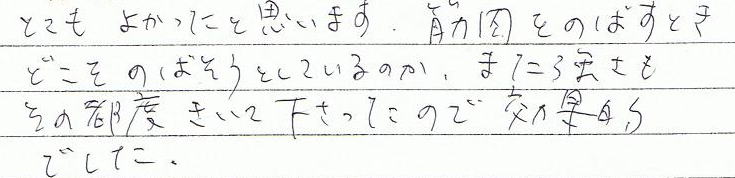 とてもよかったと思います。筋肉をのばすとき
どこをのばそうとしているのか、また強さも
その都度きいて下さったので効果的
でした。